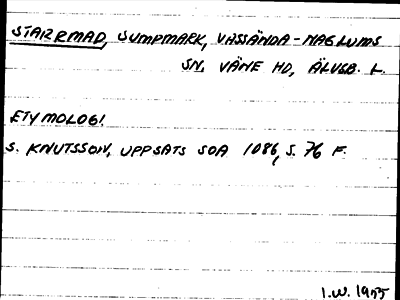 STARRMAD, SUMPMARK, VASSÄNDA-NAGLUMS
SN, VÄNE HD, ÄLVSB. L.
ETYMOLOGI
S. KNUTSSON, UPPSATS SOA 1086, S. 76 F.
I.W. 1955